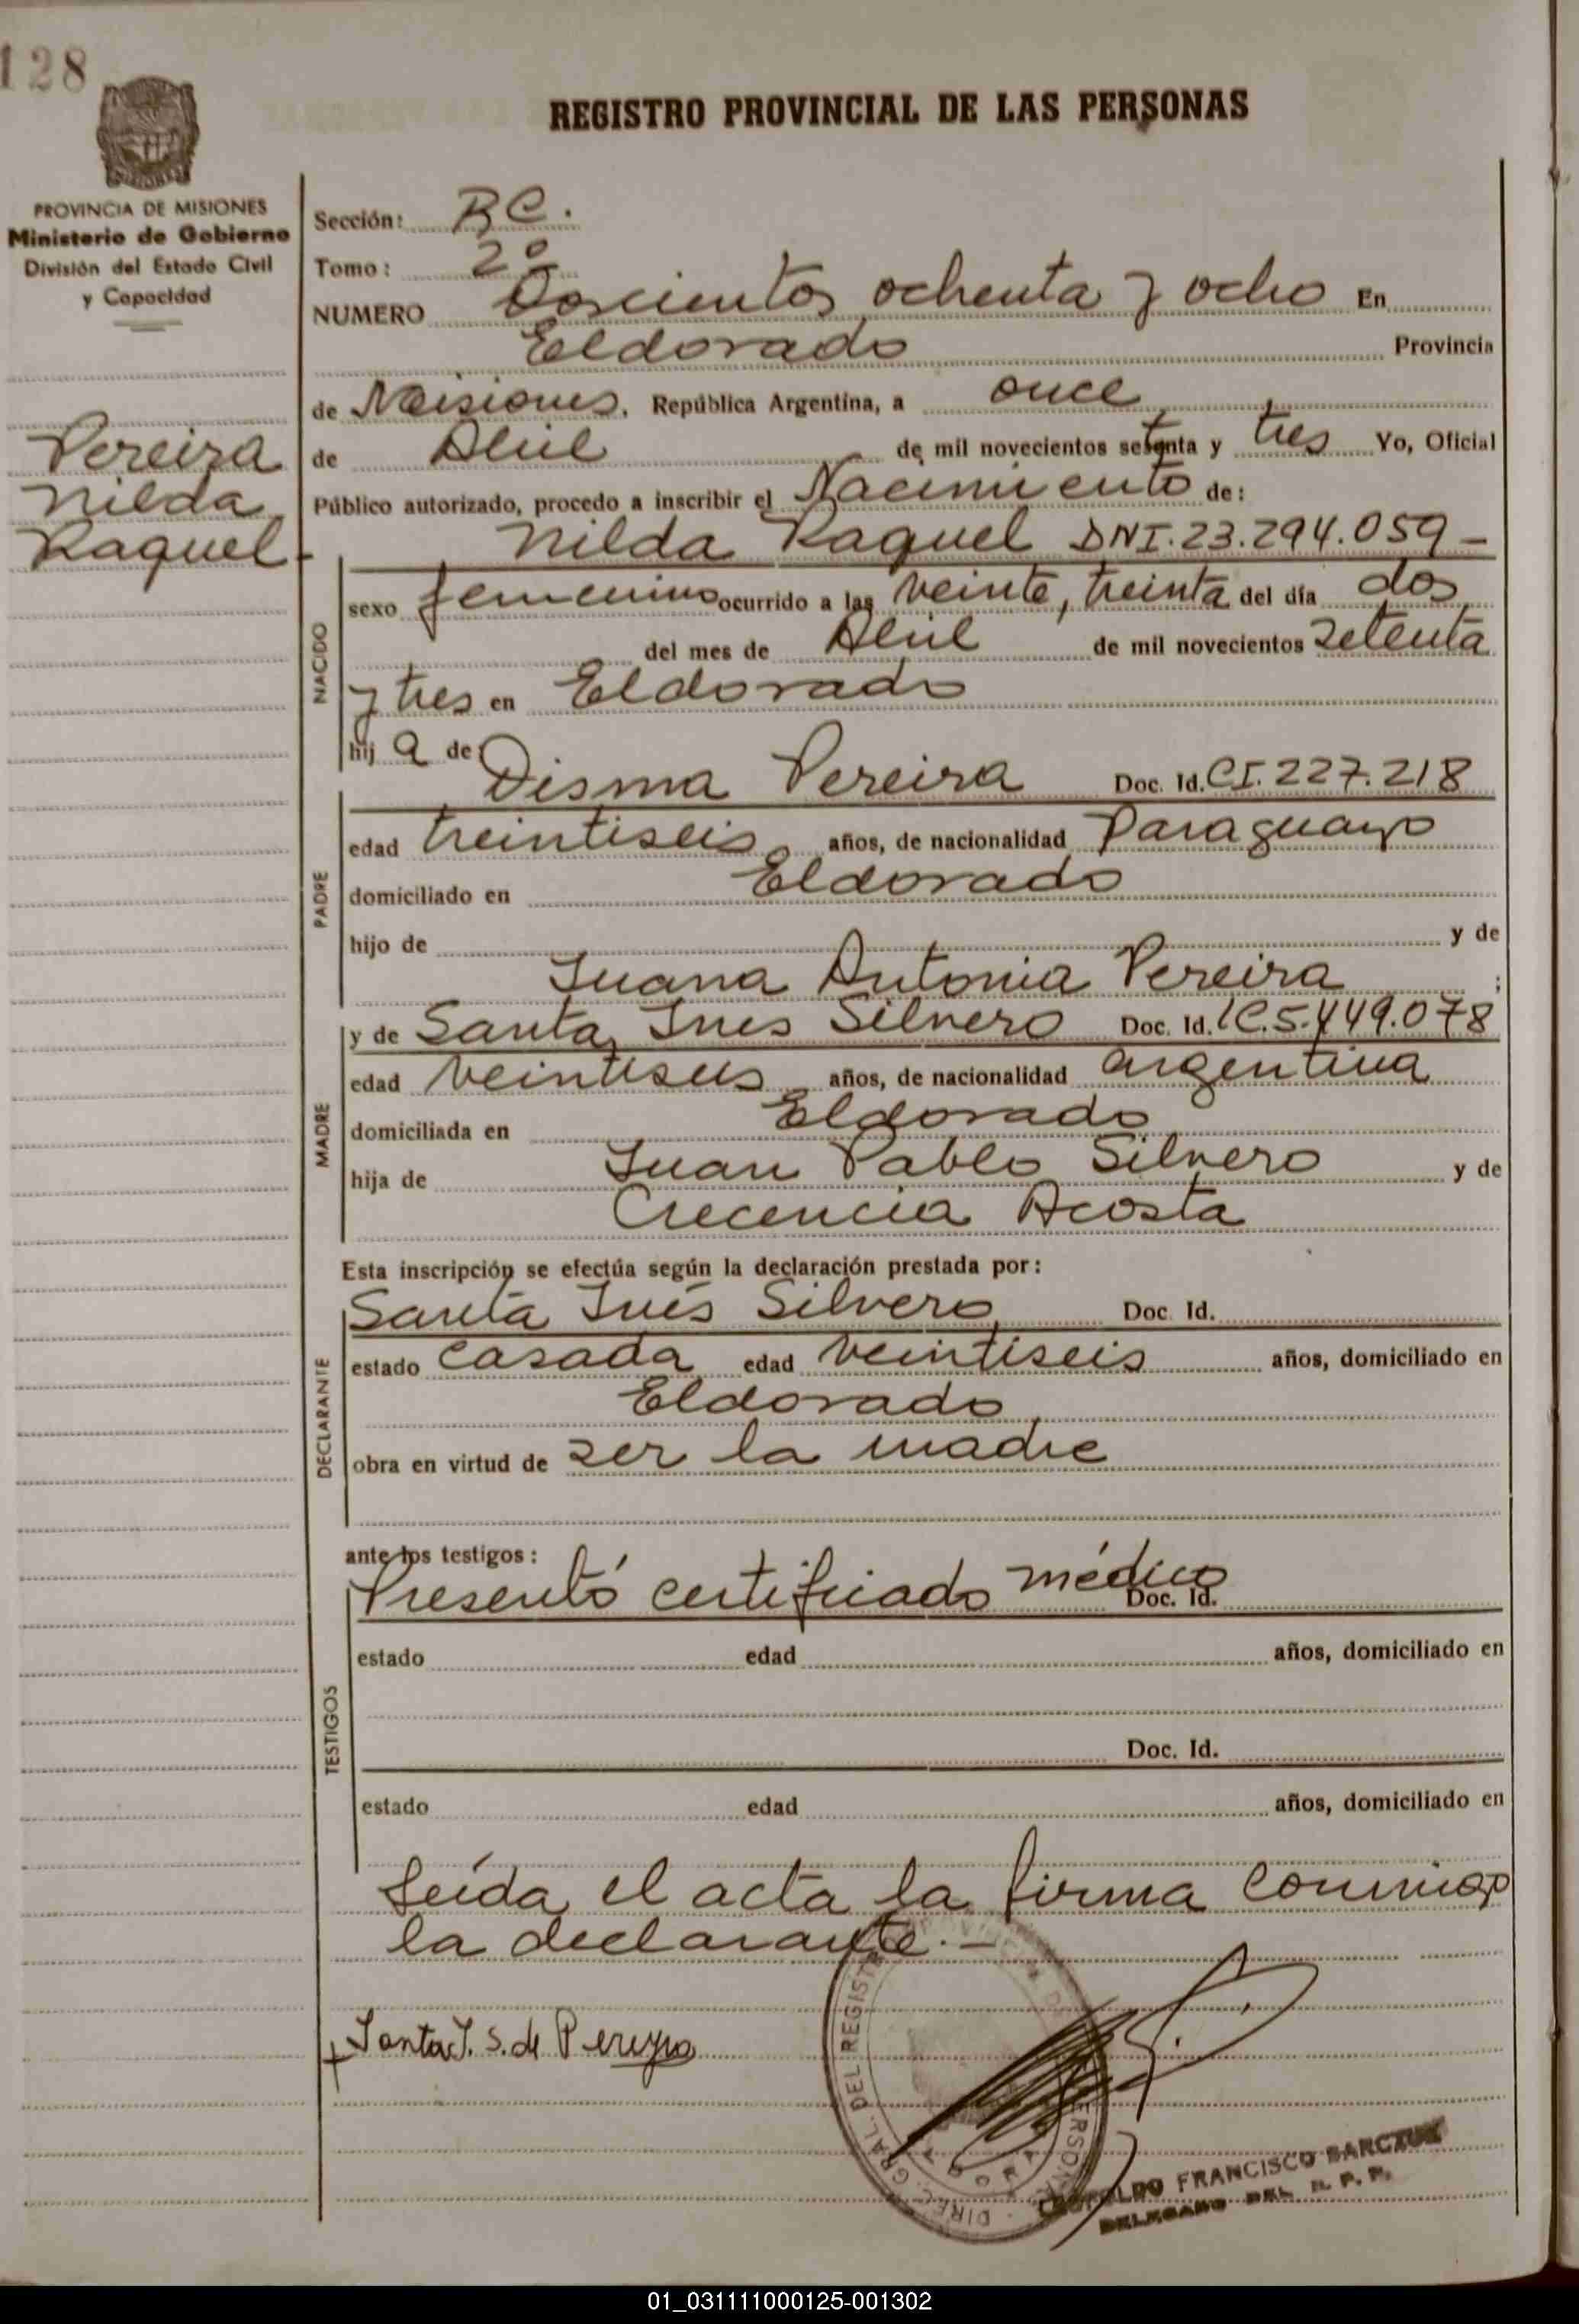 128
REGISTRO PROVINCIAL DE LAS PERSONAS
PROVINCIA DE MISIONES
Ministerio de Gobierno
División del Estado Civil
y Capacidad
Pereira
Nilda
Raquel
Sección: BC.
Tomo: 2º
NUMERO Doscientos ochenta y ocho En
Eldorado Provincia
de Misiones, República Argentina, a once
de Abril de mil novecientos setenta y tres Yo, Oficial
Público autorizado, procedo a inscribir el Nacimiento de:
Nilda Raquel DNI.23.294.059-
NACIDO
sexo femenino ocurrido a las veinte, treinta del día dos
del mes de Abril de mil novecientos setenta
y tres en Eldorado
hij a de:
Disma Pereira Doc. Id. CI.227.218
PADRE
edad treintiseis años, de nacionalidad Paraguayo
domiciliado en Eldorado
hijo de y de
Juana Antonia Pereira ;
y de Santa Ines Silvero Doc. Id. LC.5.449.078
MADRE
edad veintiseis años, de nacionalidad argentina
domiciliada en Eldorado
hija de Juan Pablo Silvero y de
Crecencia Acosta
Esta inscripción se efectúa según la declaración prestada por:
Santa Inés Silvero Doc. Id.
DECLARANTE
estado casada edad veintiseis años, domiciliado en
Eldorado
obra en virtud de ser la madre
ante los testigos:
Presentó certificado médico Doc. Id.
TESTIGOS
estado edad años, domiciliado en
Doc. Id.
estado edad años, domiciliado en
Leída el acta la firma conmigo
la declarante.-
Santa I. S. de Pereyra
DIREC. GRAL. DEL REGISTRO
FRANCISCO
DELEGADO DEL R. P. P.
01_031111000125-001302